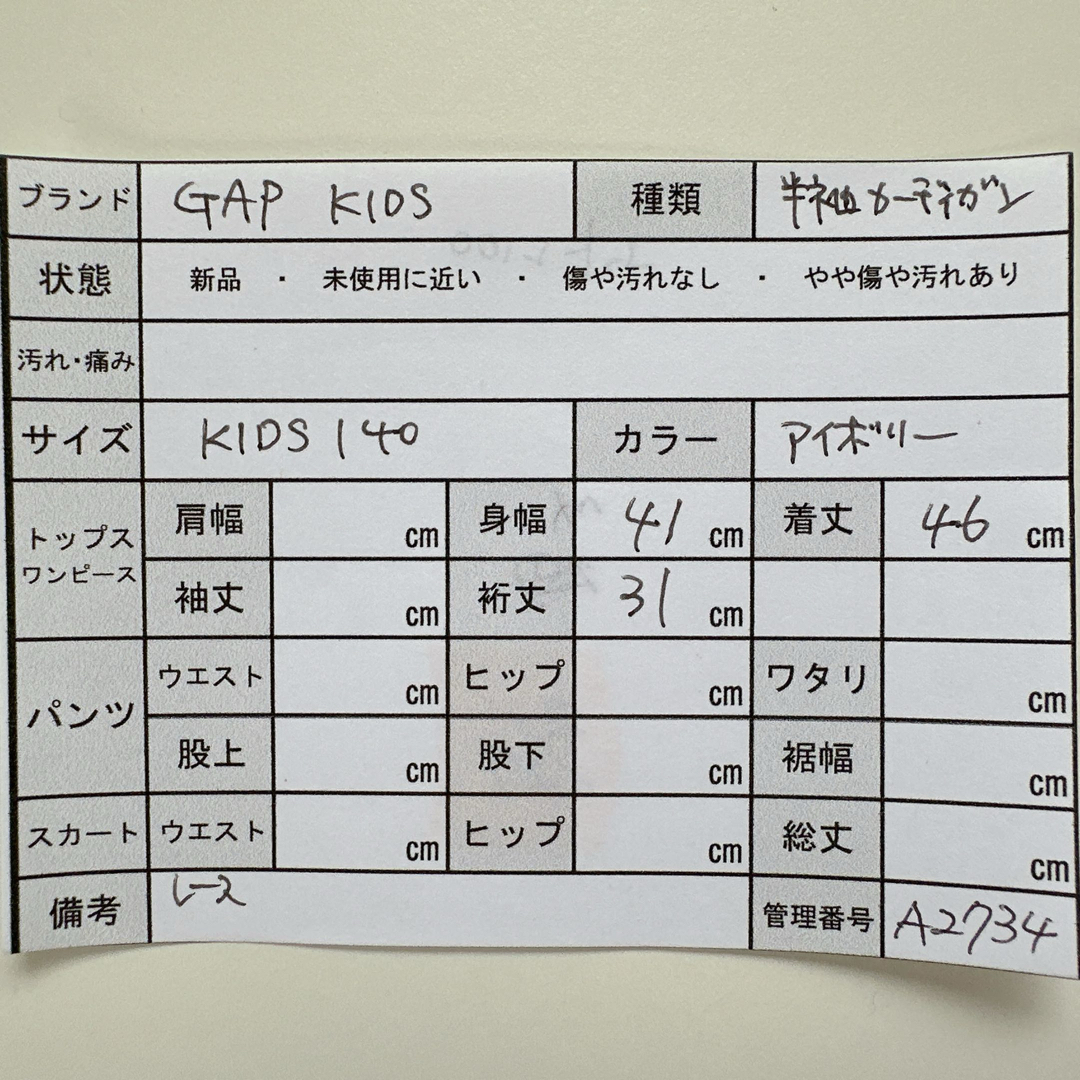 ブランド GAP KIDS 種類 半袖カーディガン
状態 新品 ・ 未使用に近い ・ 傷や汚れなし ・ やや傷や汚れあり
汚れ・痛み
サイズ KIDS 140 カラー アイボリー
トップス
ワンピース
肩幅 cm 身幅 41 cm 着丈 46 cm
袖丈 cm 裄丈 31 cm
パンツ
ウエスト cm ヒップ cm ワタリ cm
股上 cm 股下 cm 裾幅 cm
スカート ウエスト cm ヒップ cm 総丈 cm
備考 レース 管理番号 A2734